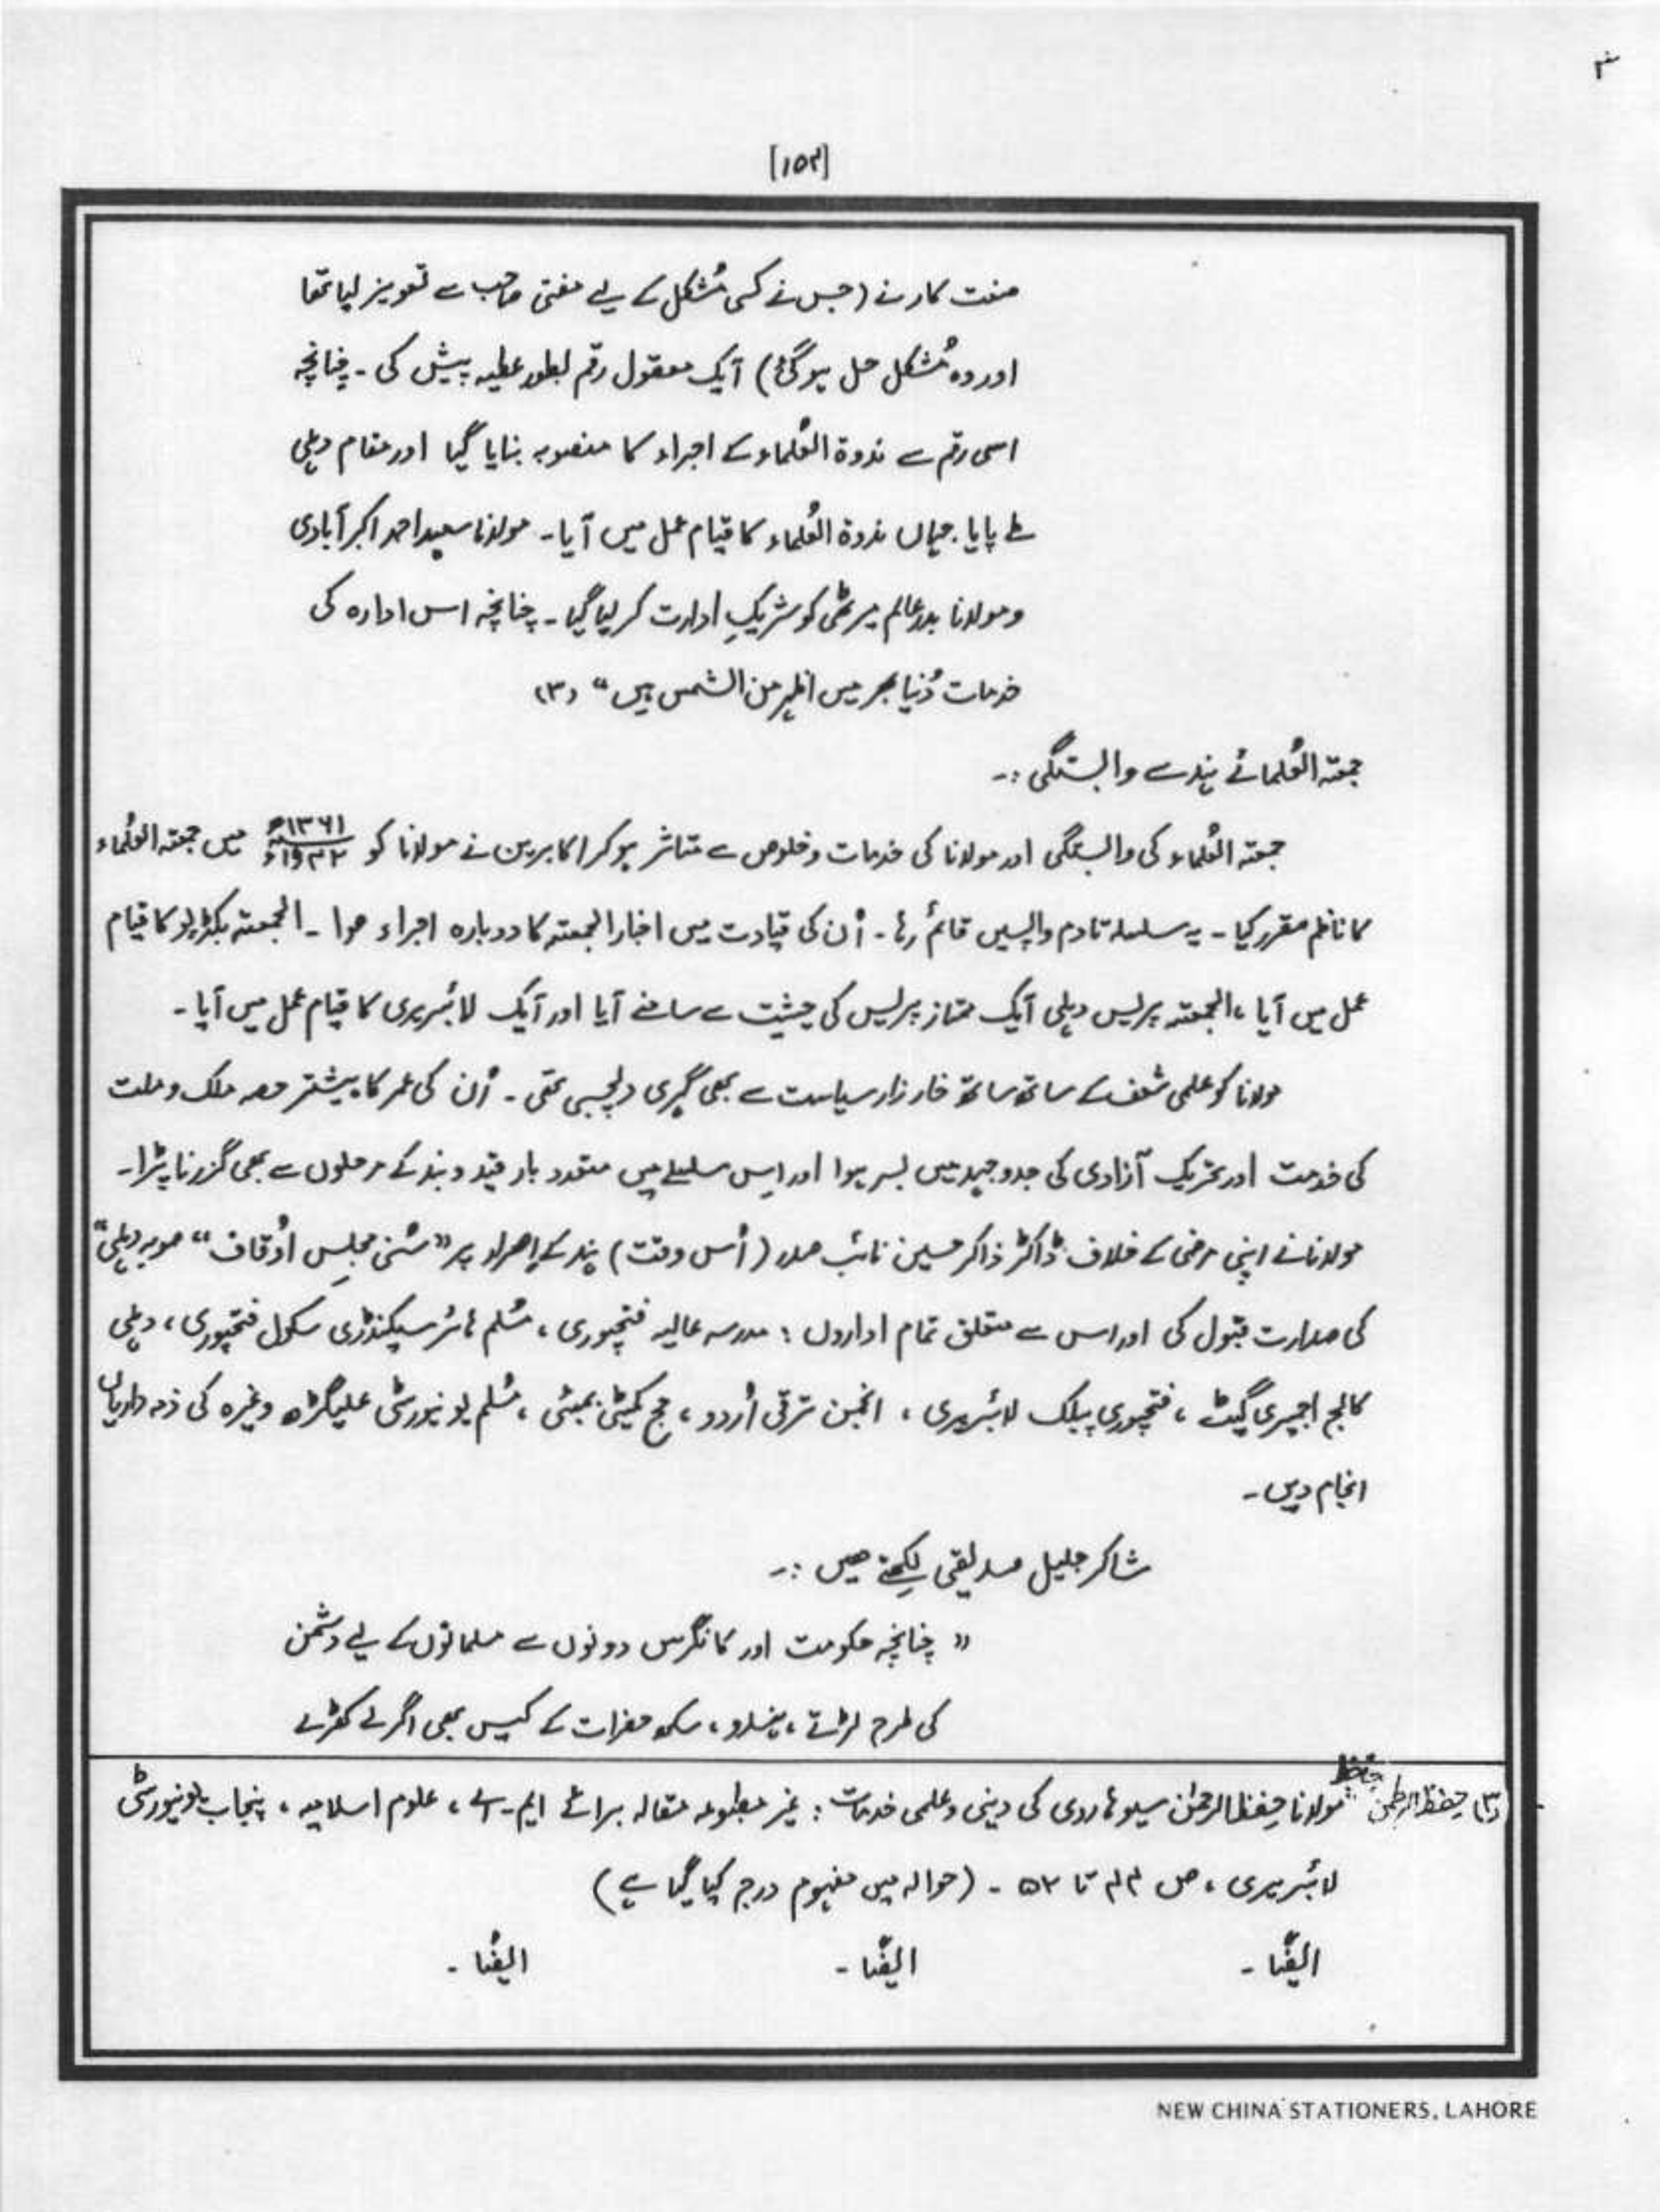 [۱۵۴]
صنعت کار نے (جس نے کسی مُشکل کے لیے مفتی صاحب سے تعویز لیا تھا
اور وہ مُشکل حل ہو گئی) ایک معقول رقم بطور عطیہ پیش کی ۔ چنانچہ
اسی رقم سے ندوۃ العُلماء کے اجراء کا منصوبہ بنایا گیا اور مقام دہلی
طے پایا۔ جہاں ندوۃ العُلماء کا قیام عمل میں آیا۔ مولانا سعید احمد اکبر آبادی
و مولانا بدر عالم میرٹھی کو شریکِ ادارت کر لیا گیا ۔ چنانچہ اس ادارہ کی
خدمات دُنیا بھر میں اظہر من الشمس ہیں “ (۳)
جمعتہ العُلمائے ہند سے وابستگی :۔
جمعتہ العُلماء کی وابستگی اور مولانا کی خدمات و خلوص سے متاثر ہو کر اکابرین نے مولانا کو ۱۳۶۱ھ / ۱۹۴۲ء میں جمعتہ العُلماء
کا ناظم مقرر کیا ۔ یہ سلسلہ تادم واپسیں قائم رہا ۔ اُن کی قیادت میں اخبار الجمعتہ کا دوبارہ اجراء ہوا ۔ الجمعتہ بکڈپو کا قیام
عمل میں آیا ، الجمعتہ پریس دہلی ایک ممتاز پریس کی حیثیت سے سامنے آیا اور ایک لائبریری کا قیام عمل میں آیا ۔
مولانا کو علمی شغف کے ساتھ ساتھ خارزار سیاست سے بھی گہری دلچسپی تھی ۔ اُن کی عمر کا بیشتر حصہ ملک و ملت
کی خدمت اور تحریک آزادی کی جدوجہد میں بسر ہوا اور اِس سلسلے میں متعدد بار قید و بند کے مرحلوں سے بھی گزرنا پڑا ۔
مولانا نے اپنی مرضی کے خلاف ڈاکٹر ذاکر حسین نائب صدر (اُس وقت) ہند کے اِصرار پر “سُنی مجلسِ اوُقاف“ صوبہ دہلی“
کی صدارت قبول کی اور اس سے متعلق تمام اداروں : مدرسہ عالیہ فتحپوری ، مُسلم ہائر سیکنڈری سکول فتحپوری ، دہلی
کالج اجمیری گیٹ ، فتحپوری پبلک لائبریری ، انجمن ترقی اُردو ، حج کمیٹی بمبئی ، مُسلم یونیورسٹی علیگڑھ وغیرہ کی ذمہ داریاں
انجام دیں ۔
شاکر جلیل صدیقی لِکھتے ہیں :۔
“ چنانچہ حکومت اور کانگرس دونوں سے مسلمانوں کے لیے دشمن
کی طرح لڑتے ، ہندو ، سکھ حضرات کے کیس بھی اگر لے کھڑے
(۳) حِفظ الرحمٰن مولانا حِفظ الرحمٰن سیوہاروی کی دینی و علمی خدمات : غیر مطبوعہ مقالہ برائے ایم ۔ اے ، علوم اسلامیہ ، پنجاب یونیورسٹی
لائبریری ، ص ۴۴ تا ۵۲ ۔ (حوالہ میں مفہوم درج کیا گیا ہے)
ایضًا ۔ ایضًا ۔ ایضًا ۔
NEW CHINA STATIONERS, LAHORE